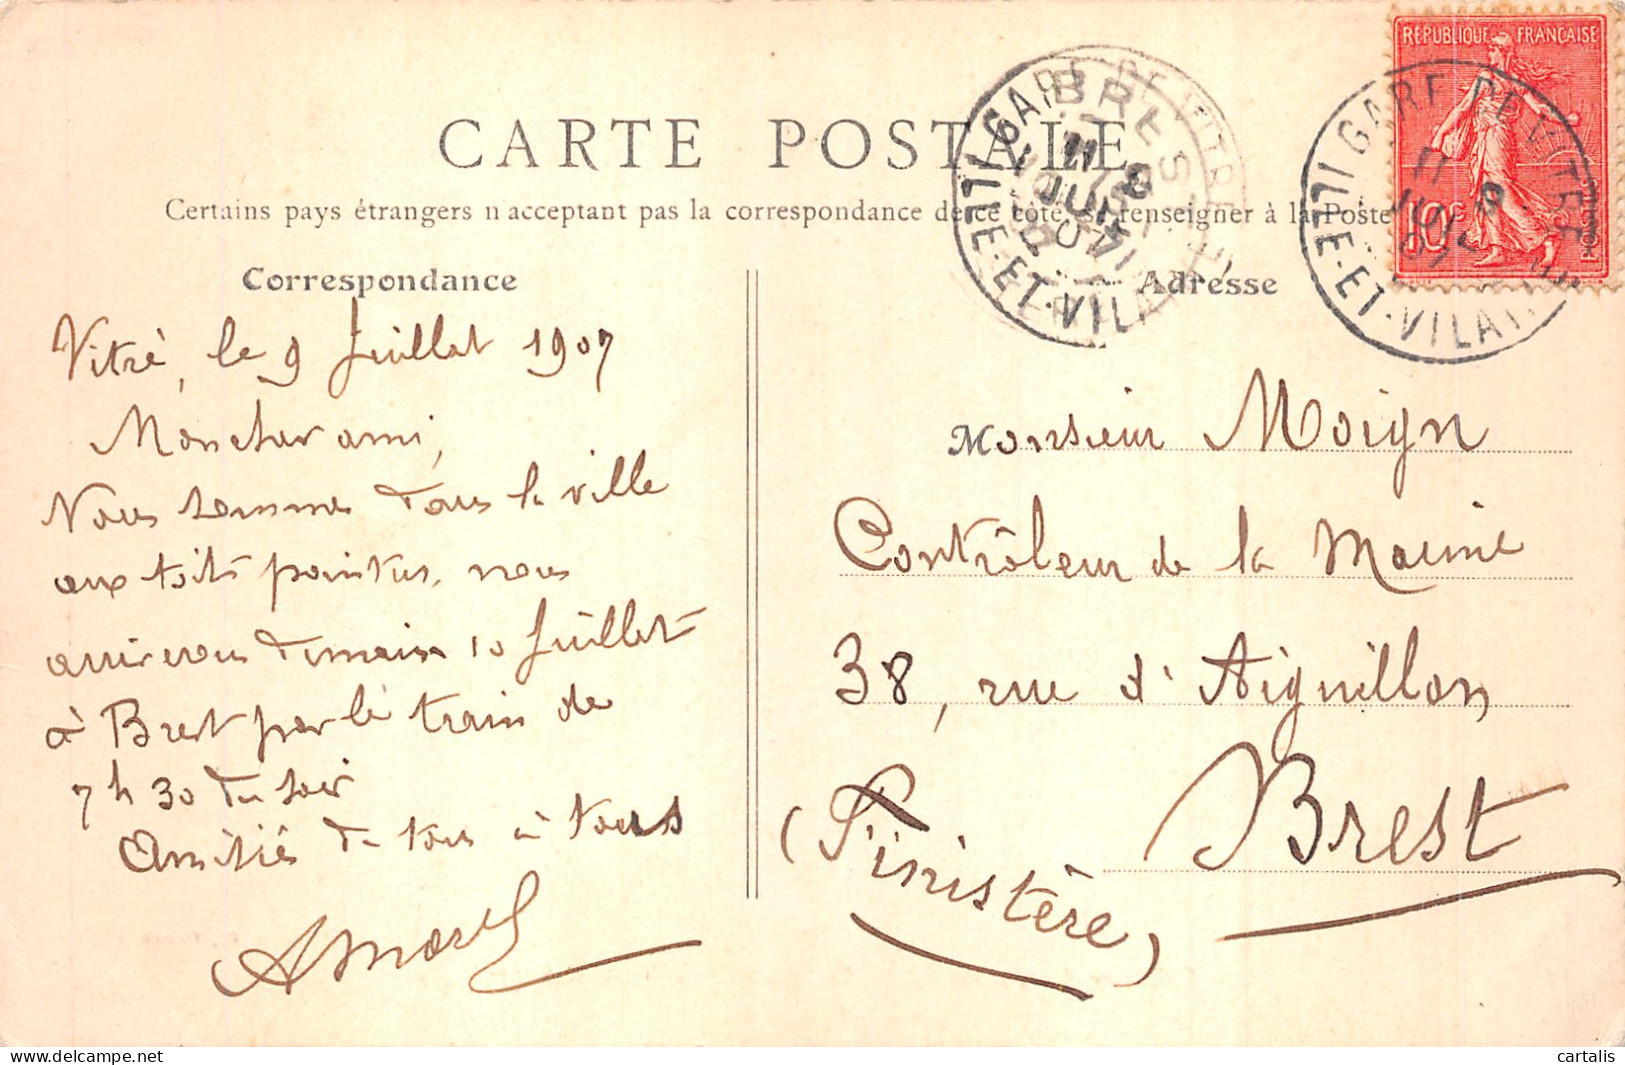 CARTE POSTALE
Certains pays étrangers n'acceptant pas la correspondance de ce côté, se renseigner à la Poste
Correspondance
Vitré, le 9 Juillet 1907
Mon cher ami,
Nous sommes dans la ville
aux toits pointus, nous
arriverons demain 10 Juillet
à Brest par le train de
7h 30 du soir
Amitiés de tous à tous
AMorel
Adresse
Monsieur Moign
Contrôleur de la Marine
38, rue d'Aiguillon
Brest
(Finistère)
REPUBLIQUE FRANÇAISE
10c
POSTES
GARE DE VITRE
ILLE-ET-VILAINE
GARE DE VITRE
ILLE-ET-VILAINE
BREST
delcampe.net
cartalis